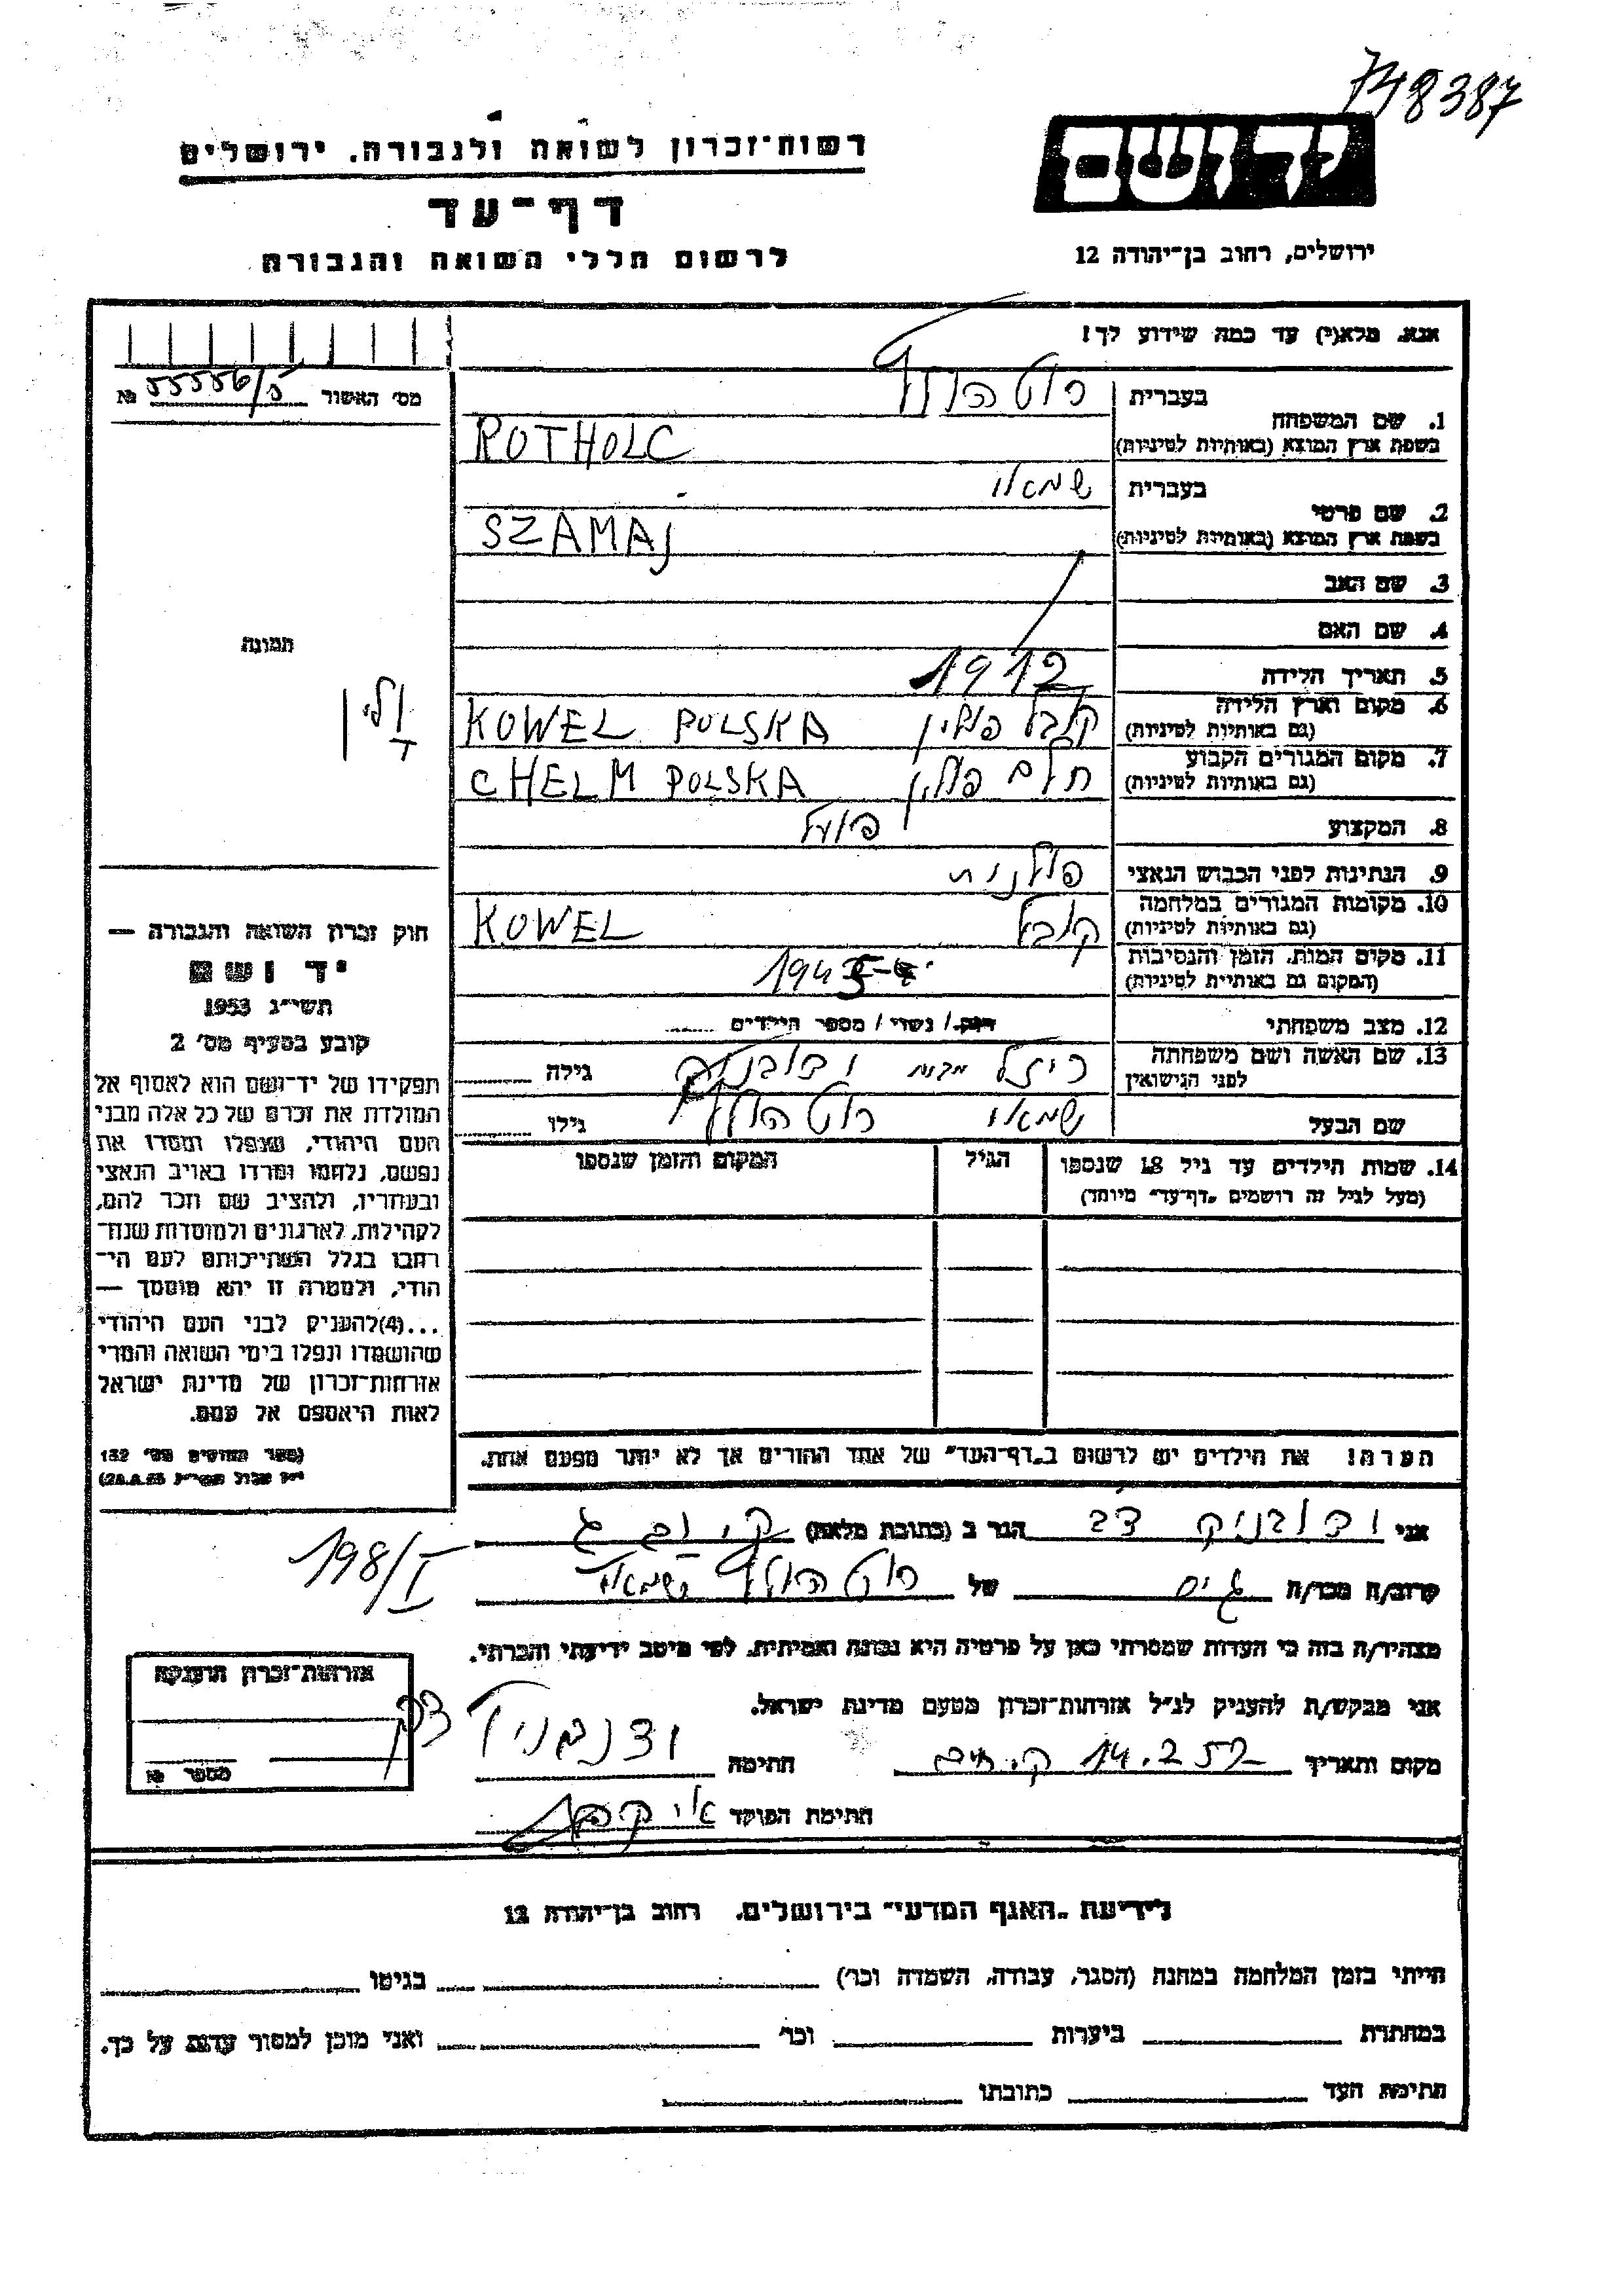 748387
יד ושם
ירושלים, רחוב בן־יהודה 12
רשות־זכרון לשואה ולגבורה. ירושלים
דף־עד
לרשום חללי השואה והגבורה
אנא. מלא(י) עד כמה שידוע לך!
מס׳ האשור 55556/5 №
1. שם המשפחה
בעברית רוט הולץ
בשפת ארץ המוצא (באותיות לטיניות) ROTHOLC
2. שם פרטי
בעברית שמאי
בשפת ארץ המוצא (באותיות לטיניות) SZAMAJ
3. שם האב
4. שם האם
5. תאריך הלידה 1912
6. מקום וארץ הלידה
(גם באותיות לטיניות) קובל פולין KOWEL POLSKA
7. מקום המגורים הקבוע
(גם באותיות לטיניות) חלם פולין CHELM POLSKA
8. המקצוע פועל
9. הנתינות לפני הכבוש הנאצי פולנית
10. מקומות המגורים במלחמה
(גם באותיות לטיניות) קובל KOWEL
11. מקום המות. הזמן והנסיבות
(המקום גם באותיית לטיניות) 1943
12. מצב משפחתי רווק / נשוי / מספר הילדים
13. שם האשה ושם משפחתה
לפני הנישואין רייזל מבית גילה
שם הבעל שמאי רוט הולץ גילו
14. שמות הילדים עד גיל 18 שנספו
(מעל לגיל זה רושמים „דף־עד״ מיוחד)
הגיל
המקום והזמן שנספו
הערה! את הילדים יש לרשום ב„דף־העד״ של אחד ההורים אך לא יותר מפעם אחת.
תמונה
חוק זכרון השואה והגבורה —
יד ושם
תשי״ג 1953
קובע בסעיף מס׳ 2
תפקידו של יד־ושם הוא לאסוף אל
המולדת את זכרם של כל אלה מבני
העם היהודי, שנפלו ומסרו את
נפשם, נלחמו ומרדו באויב הנאצי
ובעוזריו, ולהציב שם וזכר להם,
לקהילות, לארגונים ולמוסדות שנח־
רחבו בגלל השתייכותם לעם הי־
הודי, ולמטרה זו יהא מוסמך —
...(4)להעניק לבני העם היהודי
שהושמדו ונפלו בימי השואה והמרי
אזרחות־זכרון של מדינת ישראל
לאות היאספם אל עמם.
(ספר החוקים מס׳ 132
אני הגר ב (כתובת מלאה)
קרוב/ה מכר/ה גיס של רוט הולץ שמאי
198/I
מצהיר/ה בזה כי העדות שמסרתי כאן על פרטיה היא נכונה ואמיתית. לפי מיטב ידיעתי והכרתי.
אני מבקש/ת להעניק לנ״ל אזרחות־זכרון מטעם מדינת ישראל.
מקום ותאריך 14.2.57 חתימה
חתימת הפוקד
אזרחות־זכרון הוענקה
מספר №
לידיעת „האגף המדעי״ בירושלים. רחוב בן־יהודה 12
הייתי בזמן המלחמה במחנה (הסגר, עבודה, השמדה וכר׳) בגיטו
במחתרת ביערות וכר׳ ואני מוכן למסור עדות על כך.
חתימת העד כתובתו